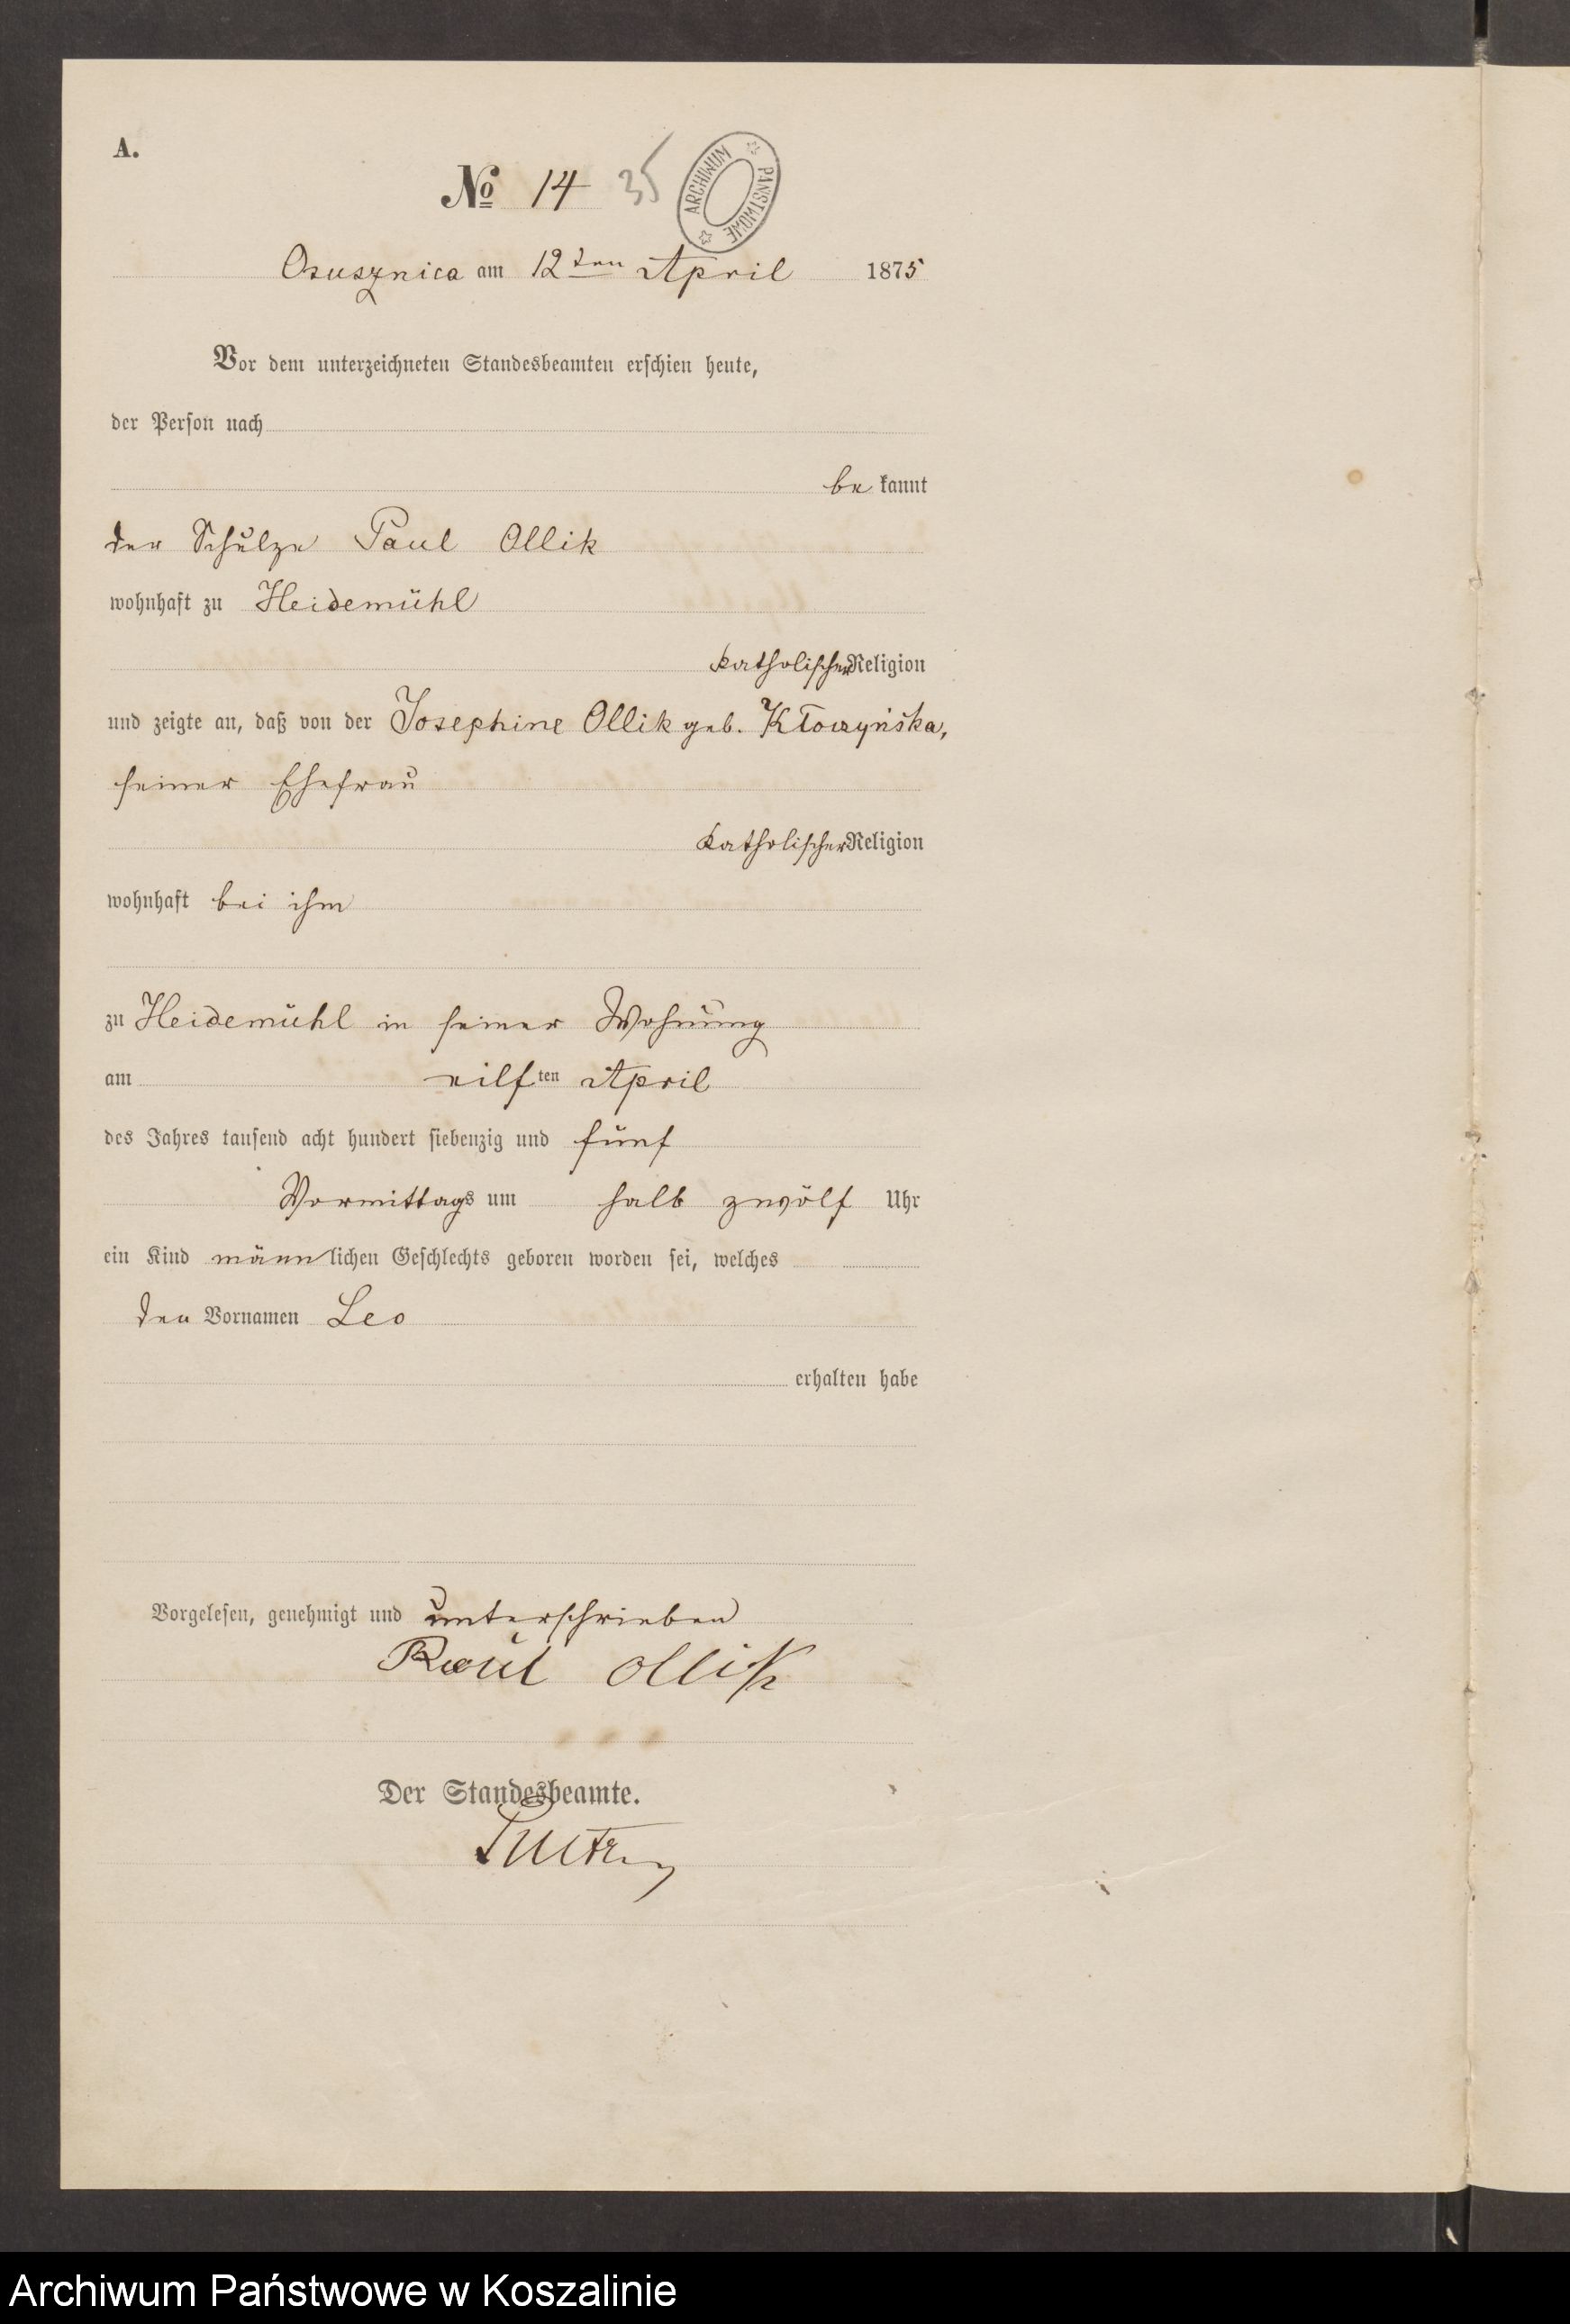 A.
№ 14 35
ARCHIWUM PAŃSTWOWE
Osusznica am 12ten April 1875
Vor dem unterzeichneten Standesbeamten erschien heute,
der Person nach
be kannt
der Schulze Paul Ollik
wohnhaft zu Heidemühl
katholischer Religion
und zeigte an, daß von der Josephine Ollik geb.
seiner Ehefrau
katholischer Religion
wohnhaft bei ihm
zu Heidemühl in seiner Wohnung
am eilf ten April
des Jahres tausend acht hundert siebenzig und fünf
Vormittags um halb zwölf Uhr
ein Kind männlichen Geschlechts geboren worden sei, welches
den Vornamen Leo
erhalten habe
Vorgelesen, genehmigt und unterschrieben
Paul Ollik
Der Standesbeamte.
Archiwum Państwowe w Koszalinie